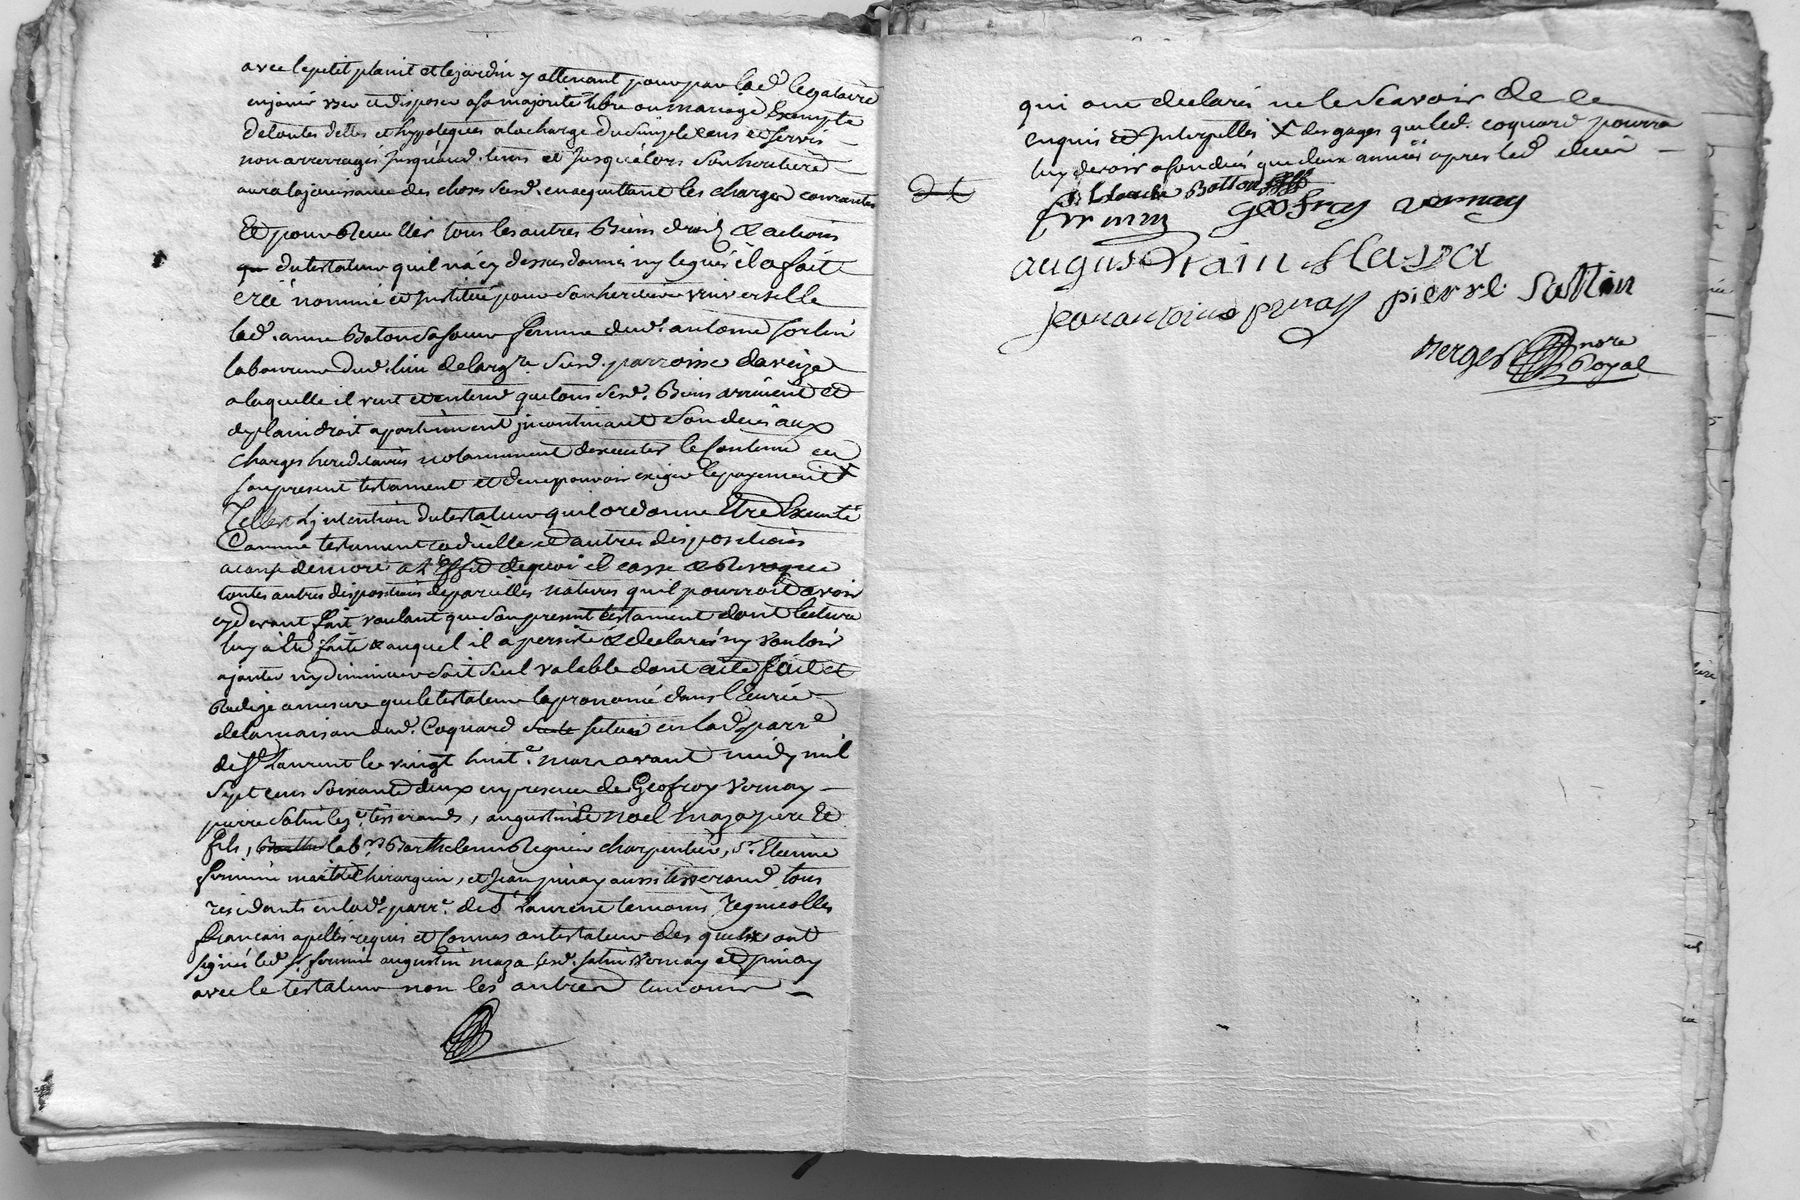 avec le petit planit et le jardin y attenant pour par lad. legataire
en jouir user et disposer a sa majorité libre ou mariage Exempte
de toutes dettes et hypoteques a la charge du simple cens et servis
non arrerragés jusqu'aud. tems et jusqu'alors son heritiere
aura la jouissance des choses susd. en acquittant les charges courantes
Et pour Recuillir tous les autres Biens droits & actions
du testateur qu'il n'a cy dessus donnés ny legués il a fait
créé nommé et Institué pour son heritiere universelle
lad. anne Baton sa soeur femme dud. antoine
laboureur dud. lieu de susd. parroisse daveize
a laquelle il veut et entend que tous sesd. Biens arrivent et
de plain droit apartiennent incontinant son decès aux
charges hereditaires notamment d'executer le contenu en
son present testament et de ne pouvoir exiger le payement X
Telle est l'intention du testateur qu'il ordonne Etre Executé
Comme testament codicille et autres dispositions
a cause de mort a l'Effet de quoi il casse & Revoque
toutes autres dispositions de pareilles natures qu'il pourroit avoir
cy devant fait voulant que son present testament dont lecture
luy a été faite & auquel il a persisté & declaré n'y vouloir
ajouter ny diminuer soit seul valable dont acte fait et
Redigé a mesure que le testateur l'a prononcé dans l'Ecurie
de la maison dud. Coquard située en lad. parr.e
de St Laurent le vingt huit.e mars avant midy mil
sept cens soixante deux en presence de Geofroy Vernay
pierre Satin tisserands, augustin & noel maza pere Et
fils, lab.rs Barthelemi Regnier charpentier, Sr. Etienne
firmin maitre chirurgien, et jean pinay aussi tisserand tous
residants en lad. parr.e de St Laurent temoins Regnicolles
francais apellés requis et connus au testateur des quels ont
signés led. Sr firmin augustin maza lesd. satin Vernay et pinay
avec le testateur non les autres temoins
qui ont declarés ne le scavoir de ce
enquis et Interpellés X des gages que led. coquard pourra
luy devoir a son decès que deux années apres led. decès
Batton
firmin Geofray vernay
augustain Maza
jean antoine pinay pierre Sattin
Verges nore
Royal